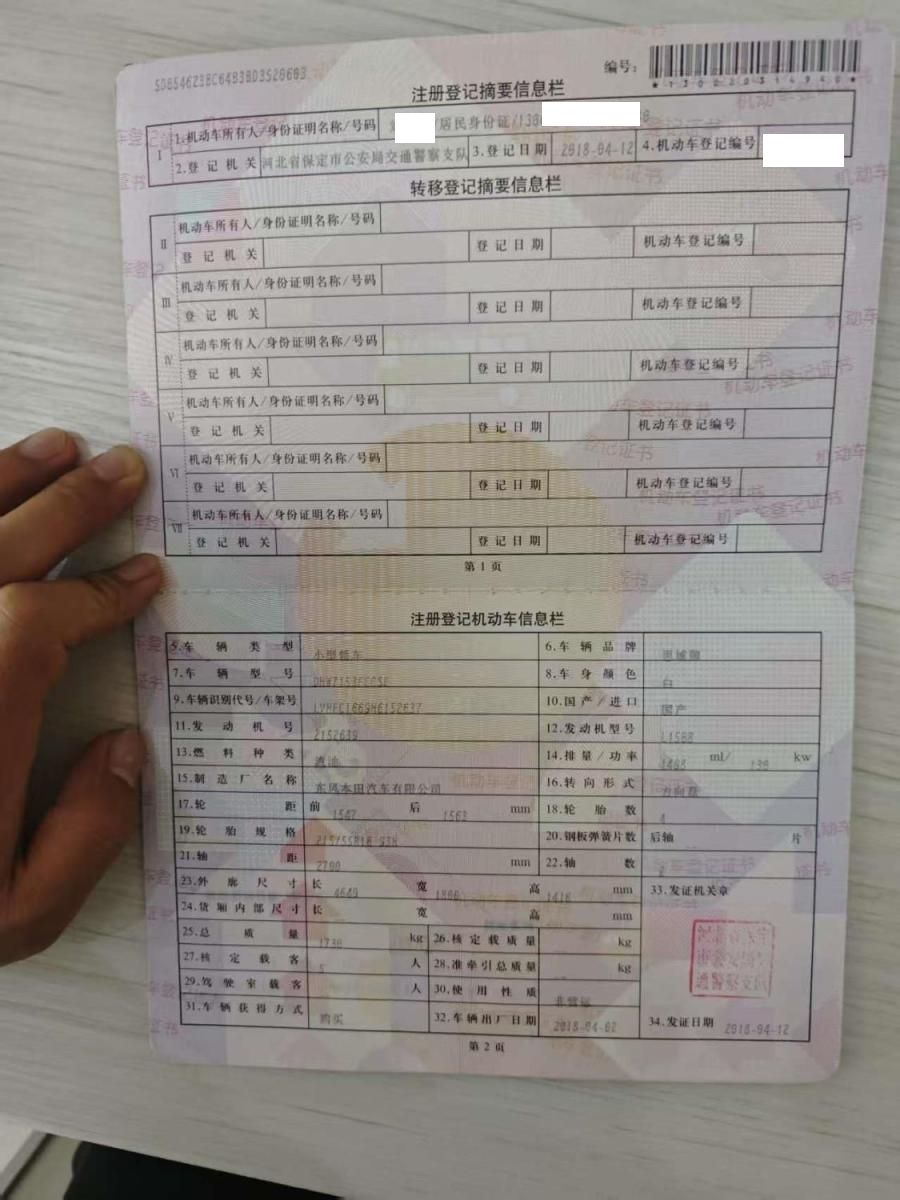 编号:
注册登记摘要信息栏
I 1.机动车所有人/身份证明名称/号码 /居民身份证/
2.登记机关 河北省保定市公安局交通警察支队 3.登记日期 2018-04-12 4.机动车登记编号
转移登记摘要信息栏
II 机动车所有人/身份证明名称/号码
登记机关 登记日期 机动车登记编号
III 机动车所有人/身份证明名称/号码
登记机关 登记日期 机动车登记编号
IV 机动车所有人/身份证明名称/号码
登记机关 登记日期 机动车登记编号
V 机动车所有人/身份证明名称/号码
登记机关 登记日期 机动车登记编号
VI 机动车所有人/身份证明名称/号码
登记机关 登记日期 机动车登记编号
VII 机动车所有人/身份证明名称/号码
登记机关 登记日期 机动车登记编号
第1页
注册登记机动车信息栏
5.车辆类型 小型轿车 6.车辆品牌 思域牌
7.车辆型号 8.车身颜色 白
9.车辆识别代号/车架号 10.国产/进口 国产
11.发动机号 2152639 12.发动机型号 L15B8
13.燃料种类 汽油 14.排量/功率 ml/ 130 kw
15.制造厂名称 东风本田汽车有限公司 16.转向形式 方向盘
17.轮距 前 1547 后 1563 mm 18.轮胎数 4
19.轮胎规格 215/55R16 93H 20.钢板弹簧片数 后轴 片
21.轴距 2700 mm 22.轴数 2
23.外廓尺寸 长 4649 宽 1800 高 1416 mm 33.发证机关章
24.货厢内部尺寸 长 宽 高 mm
25.总质量 1730 kg 26.核定载质量 kg
27.核定载客 5 人 28.准牵引总质量 kg
29.驾驶室载客 人 30.使用性质 非营运
31.车辆获得方式 购买 32.车辆出厂日期 2018-04-02 34.发证日期 2018-04-12
第2页